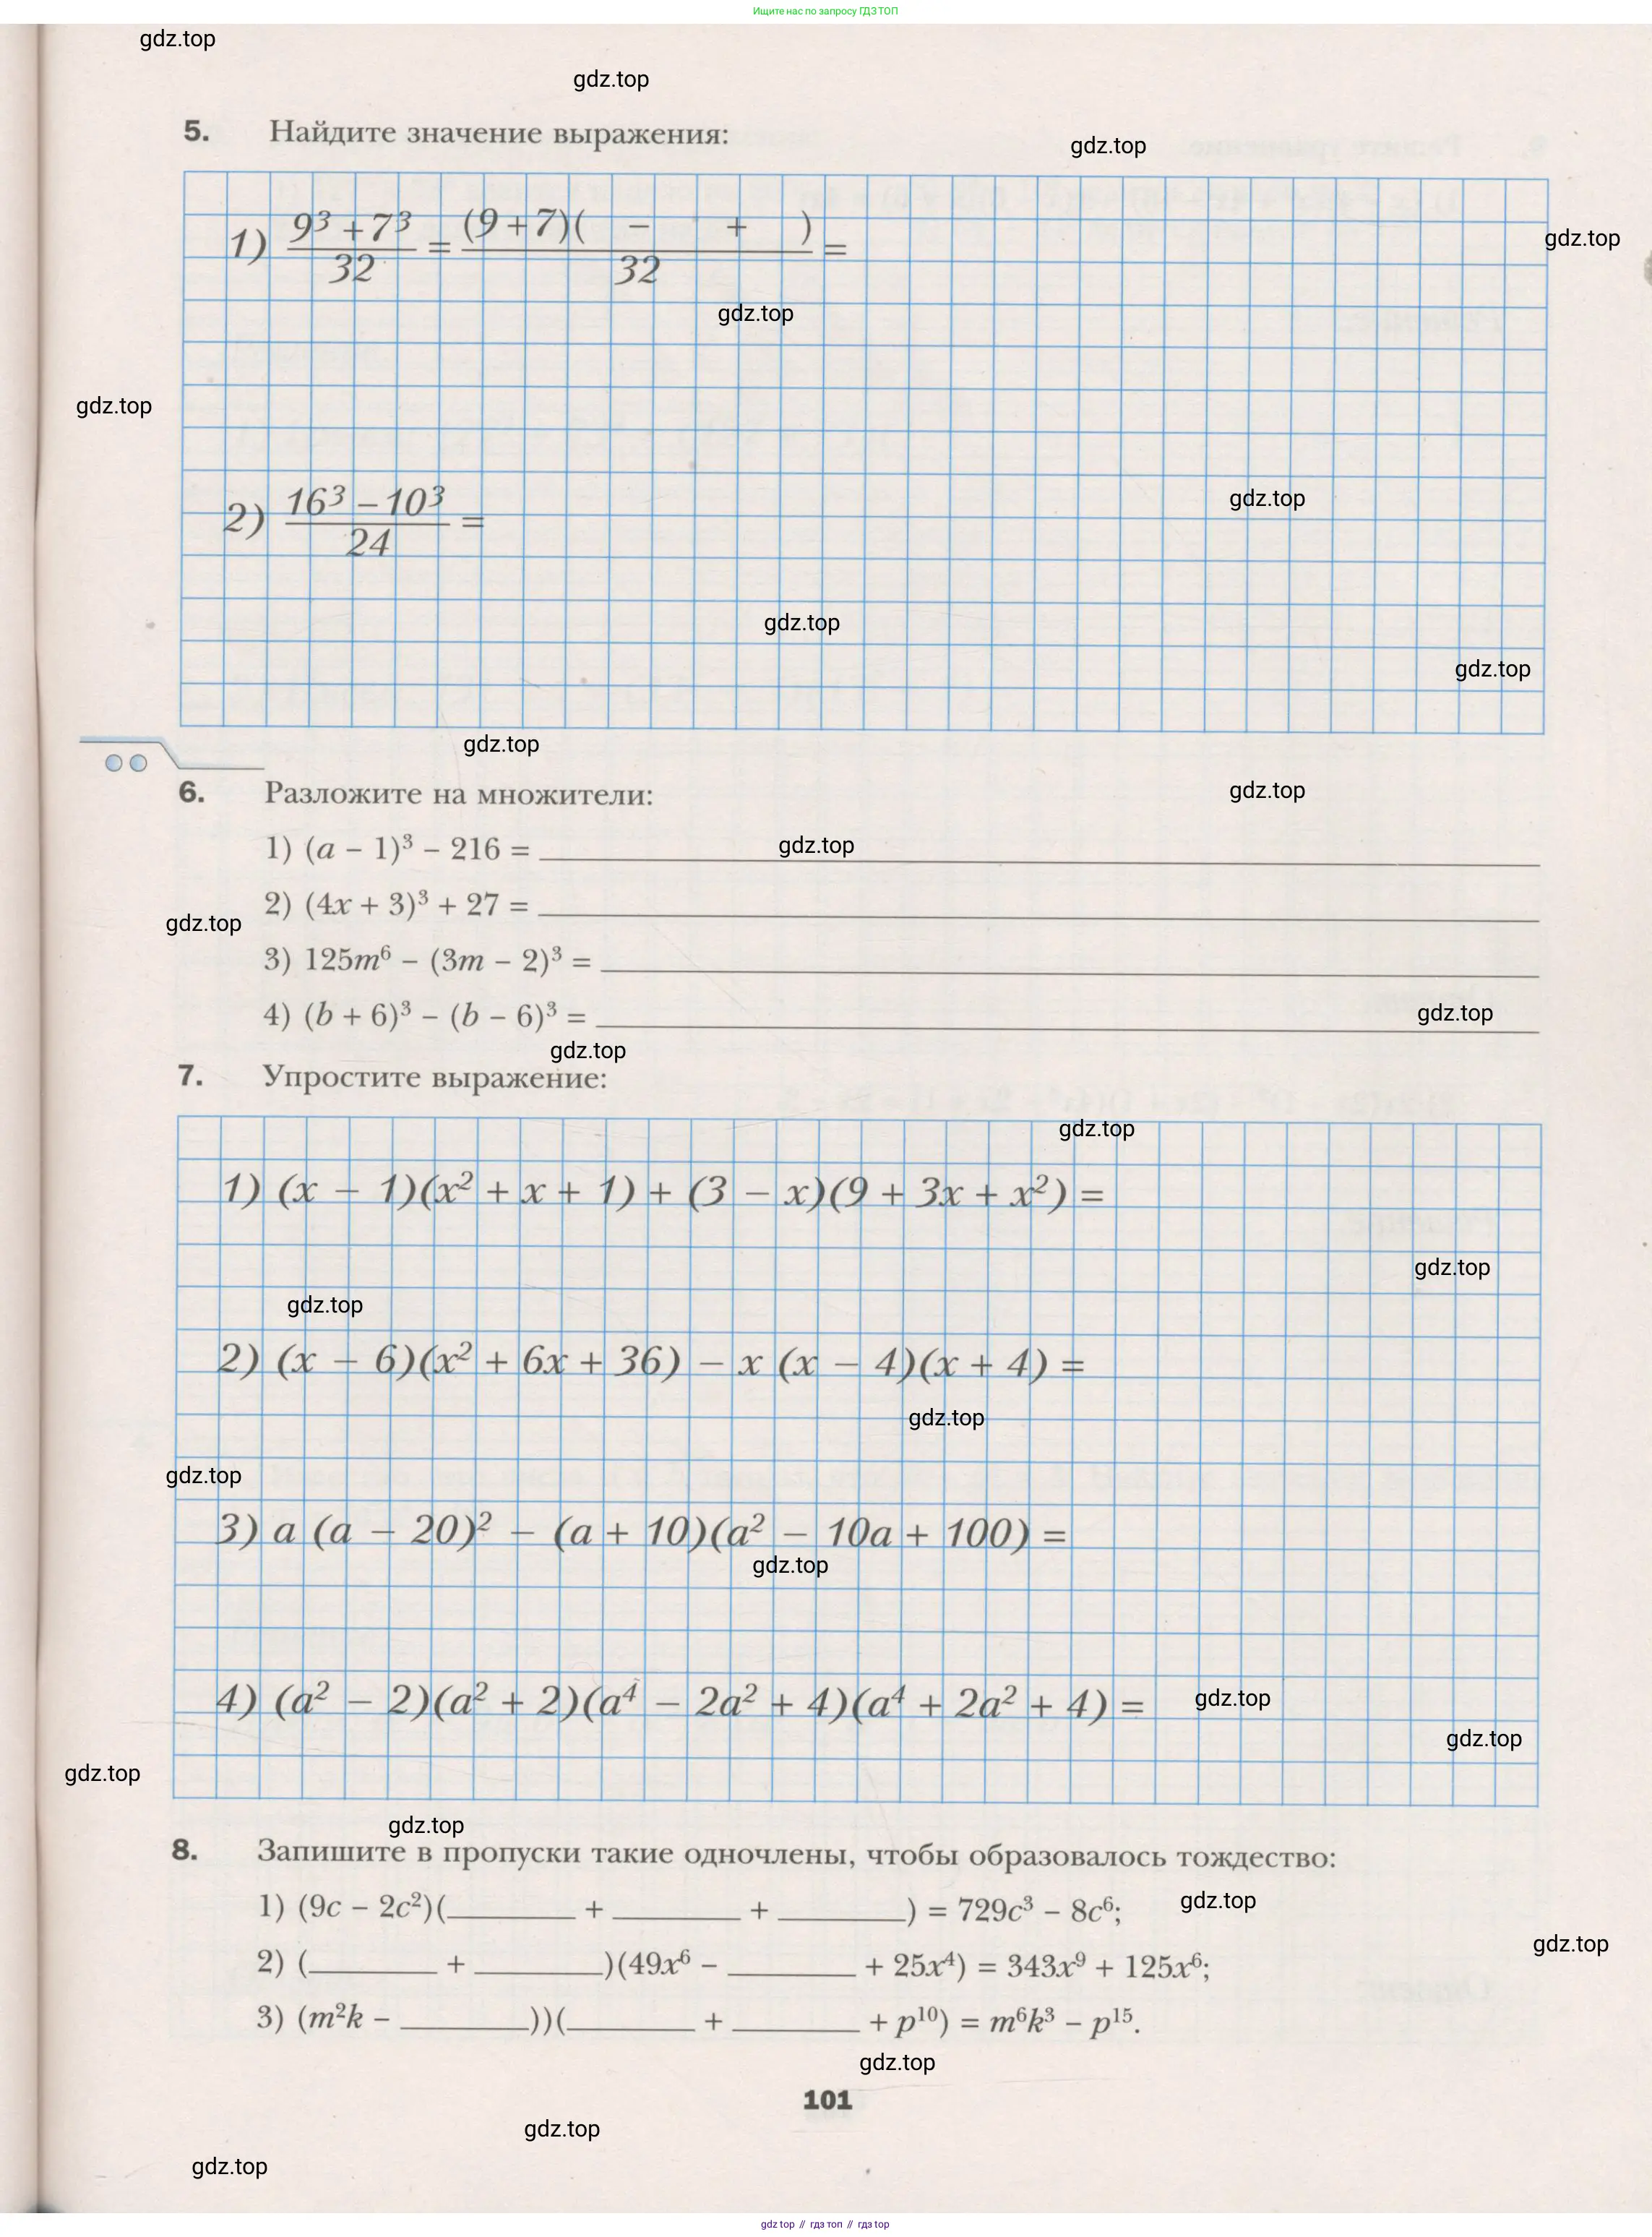 Ищите нас по запросу ГДЗ ТОП
gdz.top
gdz.top
5. Найдите значение выражения:
gdz.top
gdz.top
1) (9³ + 7³)/32 = ((9 + 7)(   −   +   ))/32 =
gdz.top
gdz.top
2) (16³ − 10³)/24 =
gdz.top
gdz.top
gdz.top
gdz.top
gdz.top
6. Разложите на множители:
1) (a − 1)³ − 216 = ________ gdz.top
2) (4x + 3)³ + 27 = ________
gdz.top
3) 125m⁶ − (3m − 2)³ = ________
4) (b + 6)³ − (b − 6)³ = ________ gdz.top
gdz.top
7. Упростите выражение:
gdz.top
1) (x − 1)(x² + x + 1) + (3 − x)(9 + 3x + x²) =
gdz.top
gdz.top
2) (x − 6)(x² + 6x + 36) − x (x − 4)(x + 4) =
gdz.top
gdz.top
3) a (a − 20)² − (a + 10)(a² − 10a + 100) =
gdz.top
4) (a² − 2)(a² + 2)(a⁴ − 2a² + 4)(a⁴ + 2a² + 4) = gdz.top
gdz.top
gdz.top
gdz.top
8. Запишите в пропуски такие одночлены, чтобы образовалось тождество:
1) (9c − 2c²)(________ + ________ + ________) = 729c³ − 8c⁶; gdz.top
gdz.top
2) (________ + ________)(49x⁶ − ________ + 25x⁴) = 343x⁹ + 125x⁶;
3) (m²k − ________))(________ + ________ + p¹⁰) = m⁶k³ − p¹⁵.
gdz.top
101
gdz.top
gdz.top
gdz top // гдз топ // гдз top